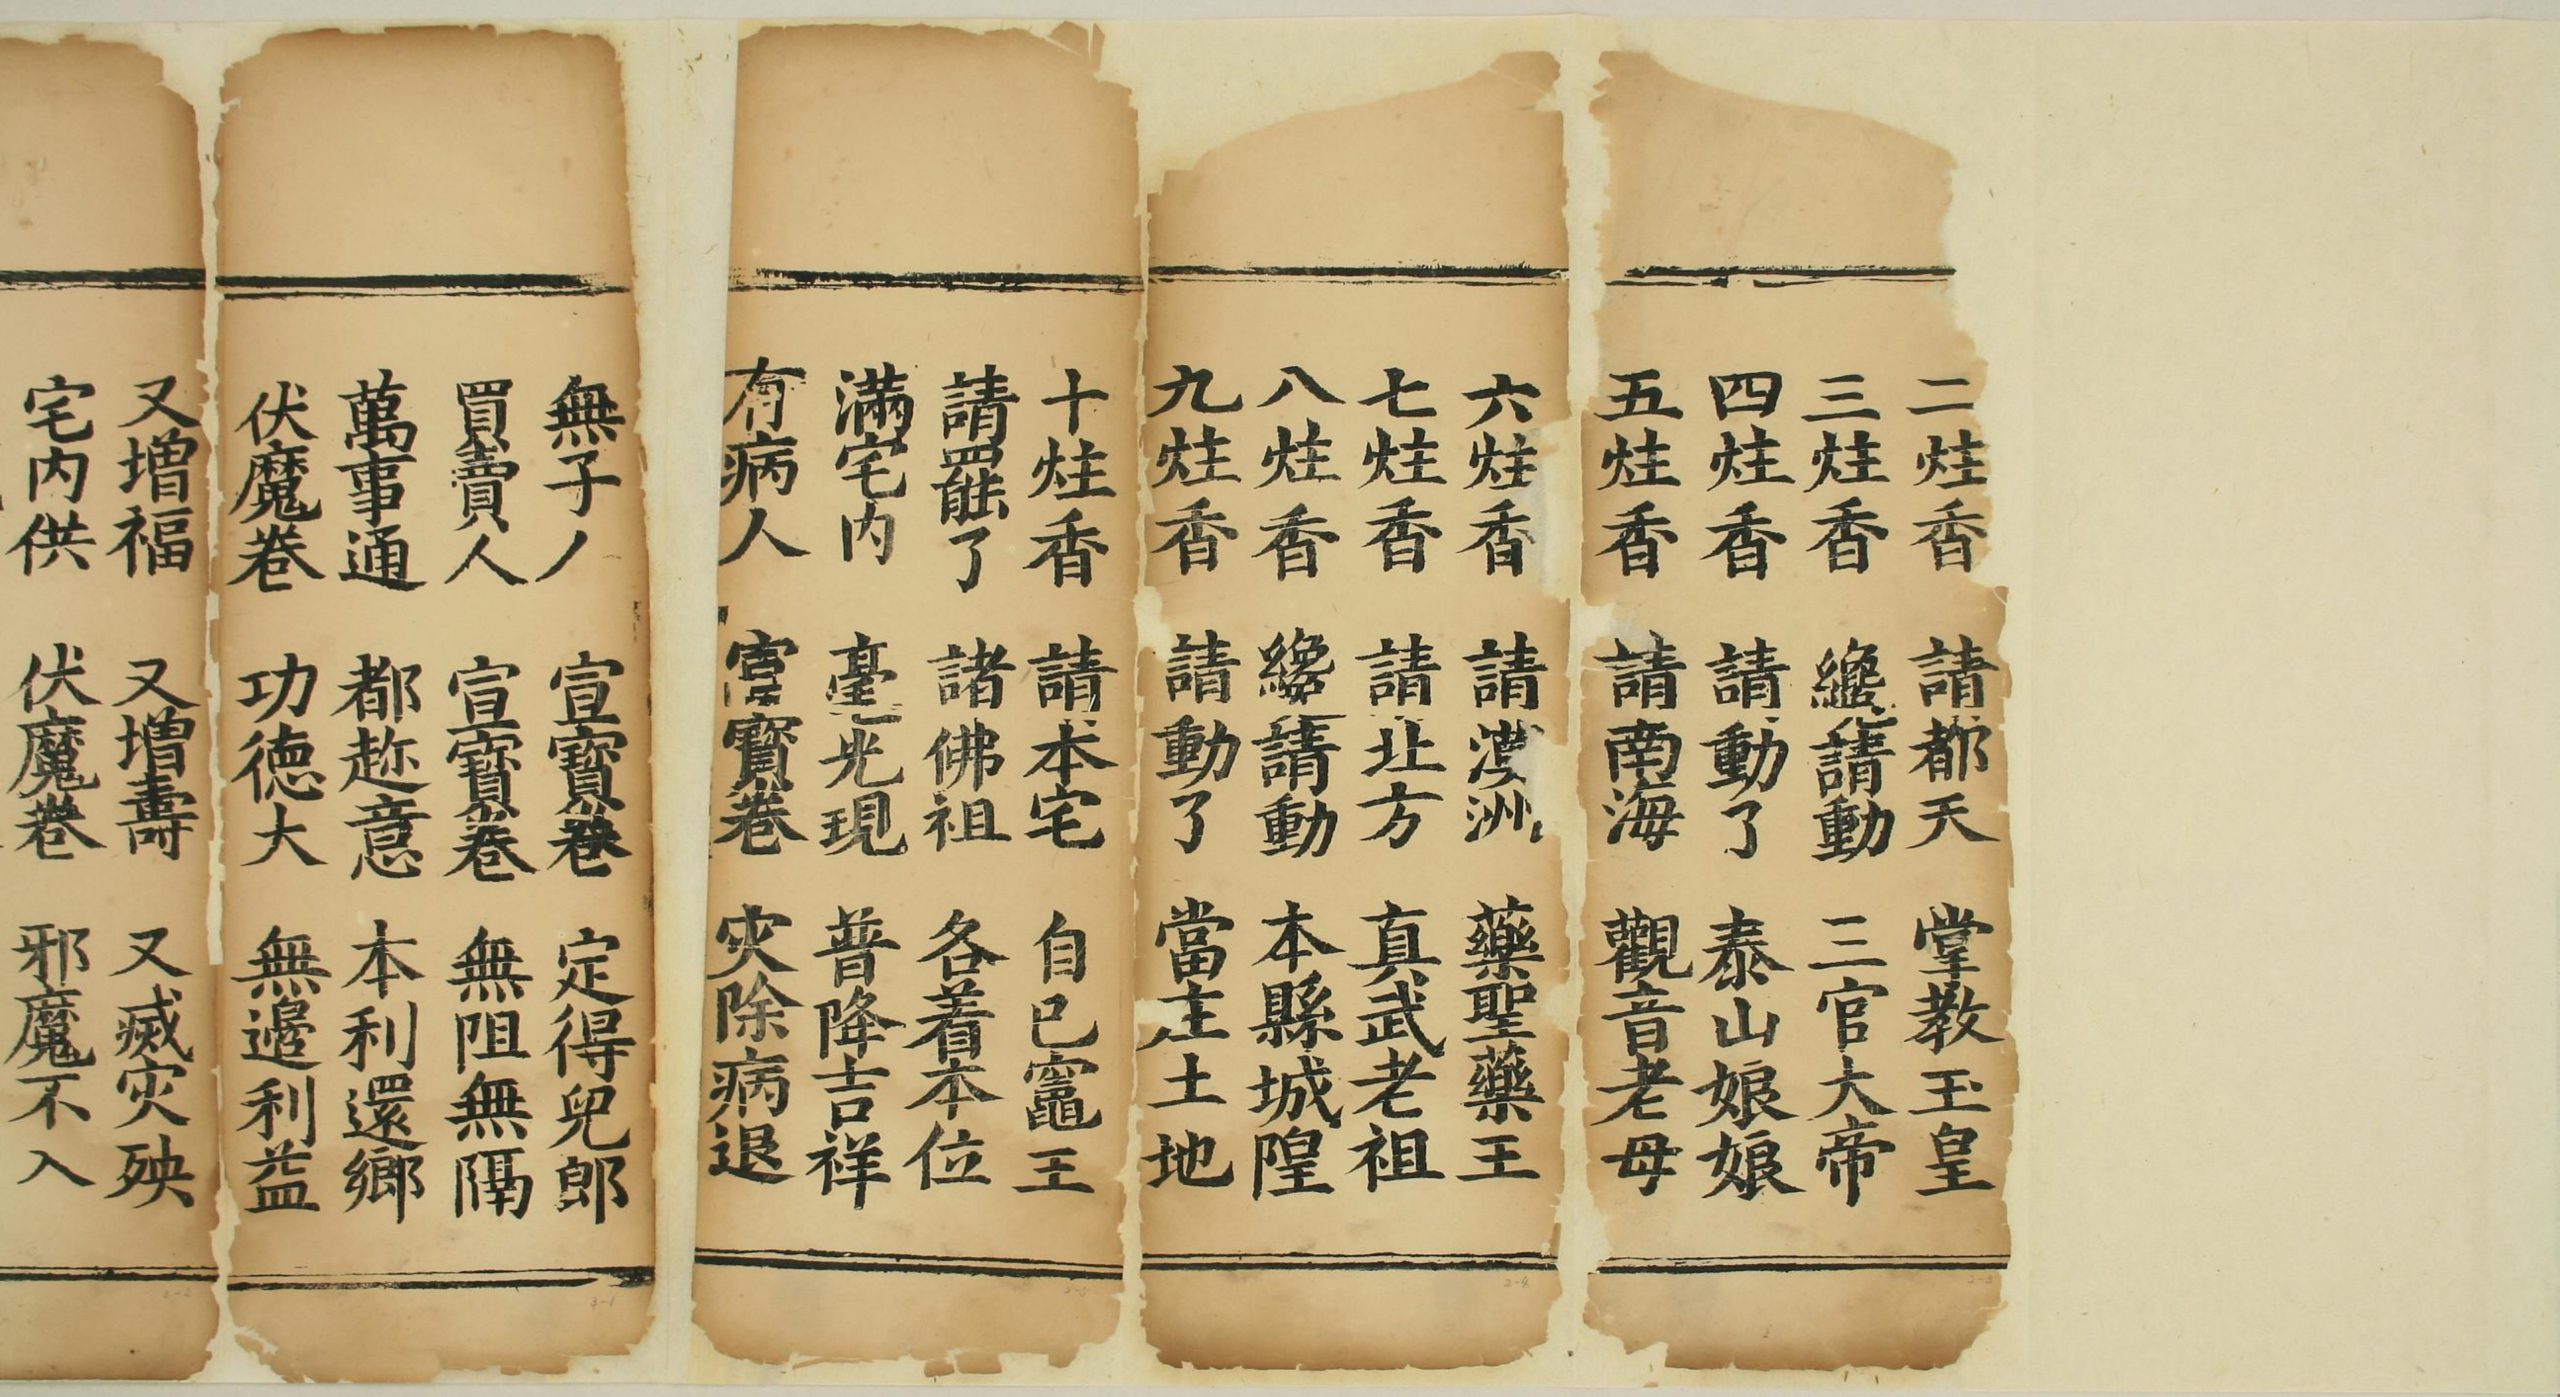 二炷香　請都天　掌教玉皇
三炷香　纔請動　三官大帝
四炷香　請動了　泰山娘娘
五炷香　請南海　觀音老母
六炷香　請漢洲　藥聖藥王
七炷香　請北方　真武老祖
八炷香　纔請動　本縣城隍
九炷香　請動了　當庄土地
十炷香　請本宅　自己竈王
請罷了　諸佛祖　各着本位
滿宅内　毫光現　普降吉祥
有病人　宣寶卷　灾除病退
無子人　宣寶卷　定得兒郎
買賣人　宣寶卷　無阻無隔
萬事通　都趂意　本利還鄉
伏魔卷　功德大　無邊利益
又增福　又增壽　又滅灾殃
宅内供　伏魔卷　邪魔不入